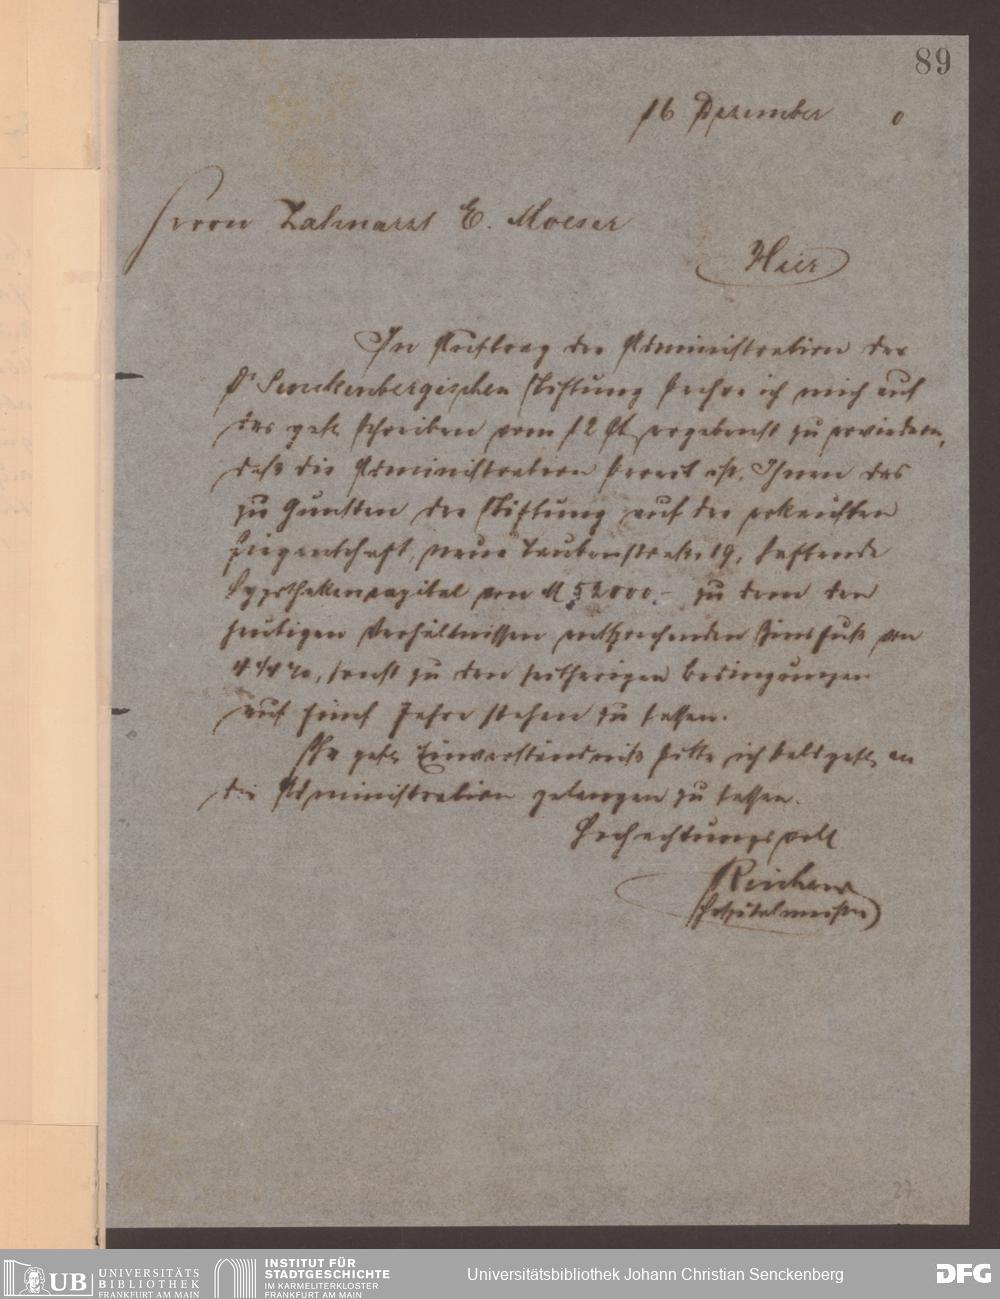 89
16 Dezember 0
Herrn Zahnarzt E. Moeser
Hier
Im Auftrag der Administration der
Dr Senckenbergischen Stiftung beehre ich mich auf
das gefl. Schreiben vom 12 ds. ergebenst zu erwiedern,
daß die Administration bereit ist, Ihnen das
zu Gunsten der Stiftung auf der erkauften
Liegenschaft, neue Taubenstraße 19, haftende
Hypothekenkapital von M 52000.- zu dem den
heutigen Verhältnissen entsprechenden Zinsfuße von
4 1/4 %, sonst zu den seitherigen Bedingungen
auf fünf Jahre stehen zu lassen.
Ihr gefl. Einverständniß bitte ich baldgefl. an
die Administration gelangen zu lassen.
Hochachtungsvoll
Reichard
Hospitalmeister
27
UB UNIVERSITÄTS
BIBLIOTHEK
FRANKFURT AM MAIN
INSTITUT FÜR
STADTGESCHICHTE
IM KARMELITERKLOSTER
FRANKFURT AM MAIN
Universitätsbibliothek Johann Christian Senckenberg
DFG